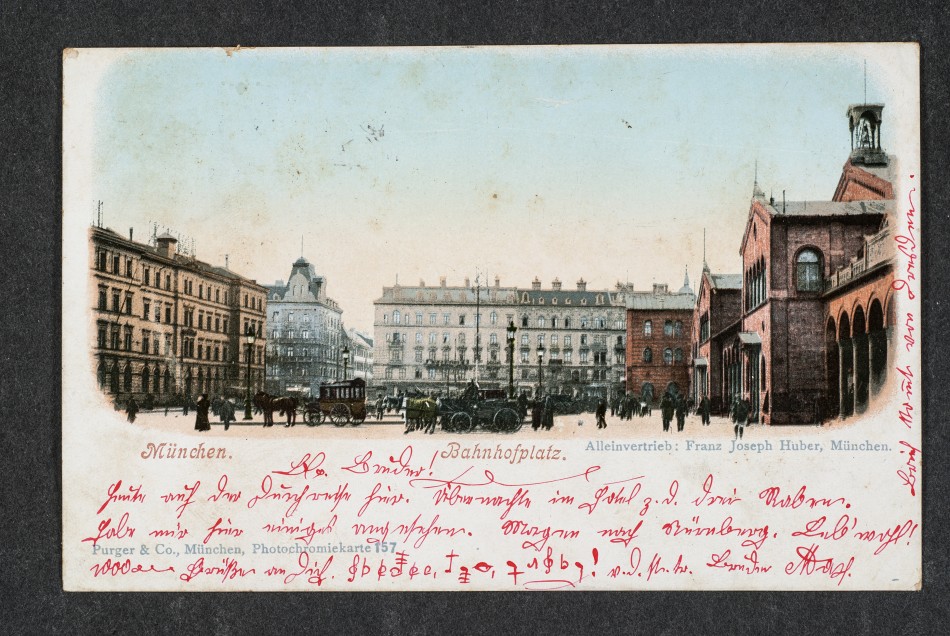 München.
Bahnhofplatz.
Alleinvertrieb: Franz Joseph Huber, München.
Lb. Bruder!
Heute auf der Durchreise hier. Übernachte im Hotel z. d. drei Raben.
Habe mir hier einiges angesehen. Morgen nach Nürnberg. Leb' wohl!
Purger & Co., München, Photochromiekarte 157.
1000 Grüße an Dich.
! v. d. Bruder